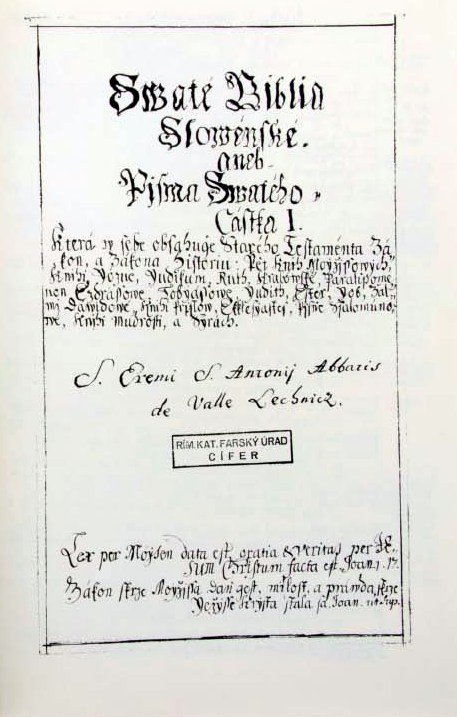 Swaté Biblia
Slowénské.
aneb
Pisma Swatého
Částka I.
Která w sebe obsahuge Starého Testaménta Zá-
kon, a Zákona Historiu: Pět Knih Moyžissowých,
Knihi Yozue, Yudikum, Ruth, Králowské, Paralipome-
non, Ezdrássowe, Tobyássowe, Yudith, Ester, Yob, Žal-
mi Dawidowe, Knihi Pryslow, Ekklesyastes, Pysne Ssalomúno-
we, Knihi Mudrosti, a Syrách.
S. Eremi S. Antonij Abbatis
de Valle Lechnicz.
RÍM. KAT. FARSKÝ ÚRAD
CÍFER
Lex per Moysen data est, gratia & veritas per JE-
SUM Christum facta est. Joan. 1. 17.
Zákon skrze Moyžissa dan gest, milost, a prawda skrze
Gežisse Krysta stala sa. Joan. ut sup.